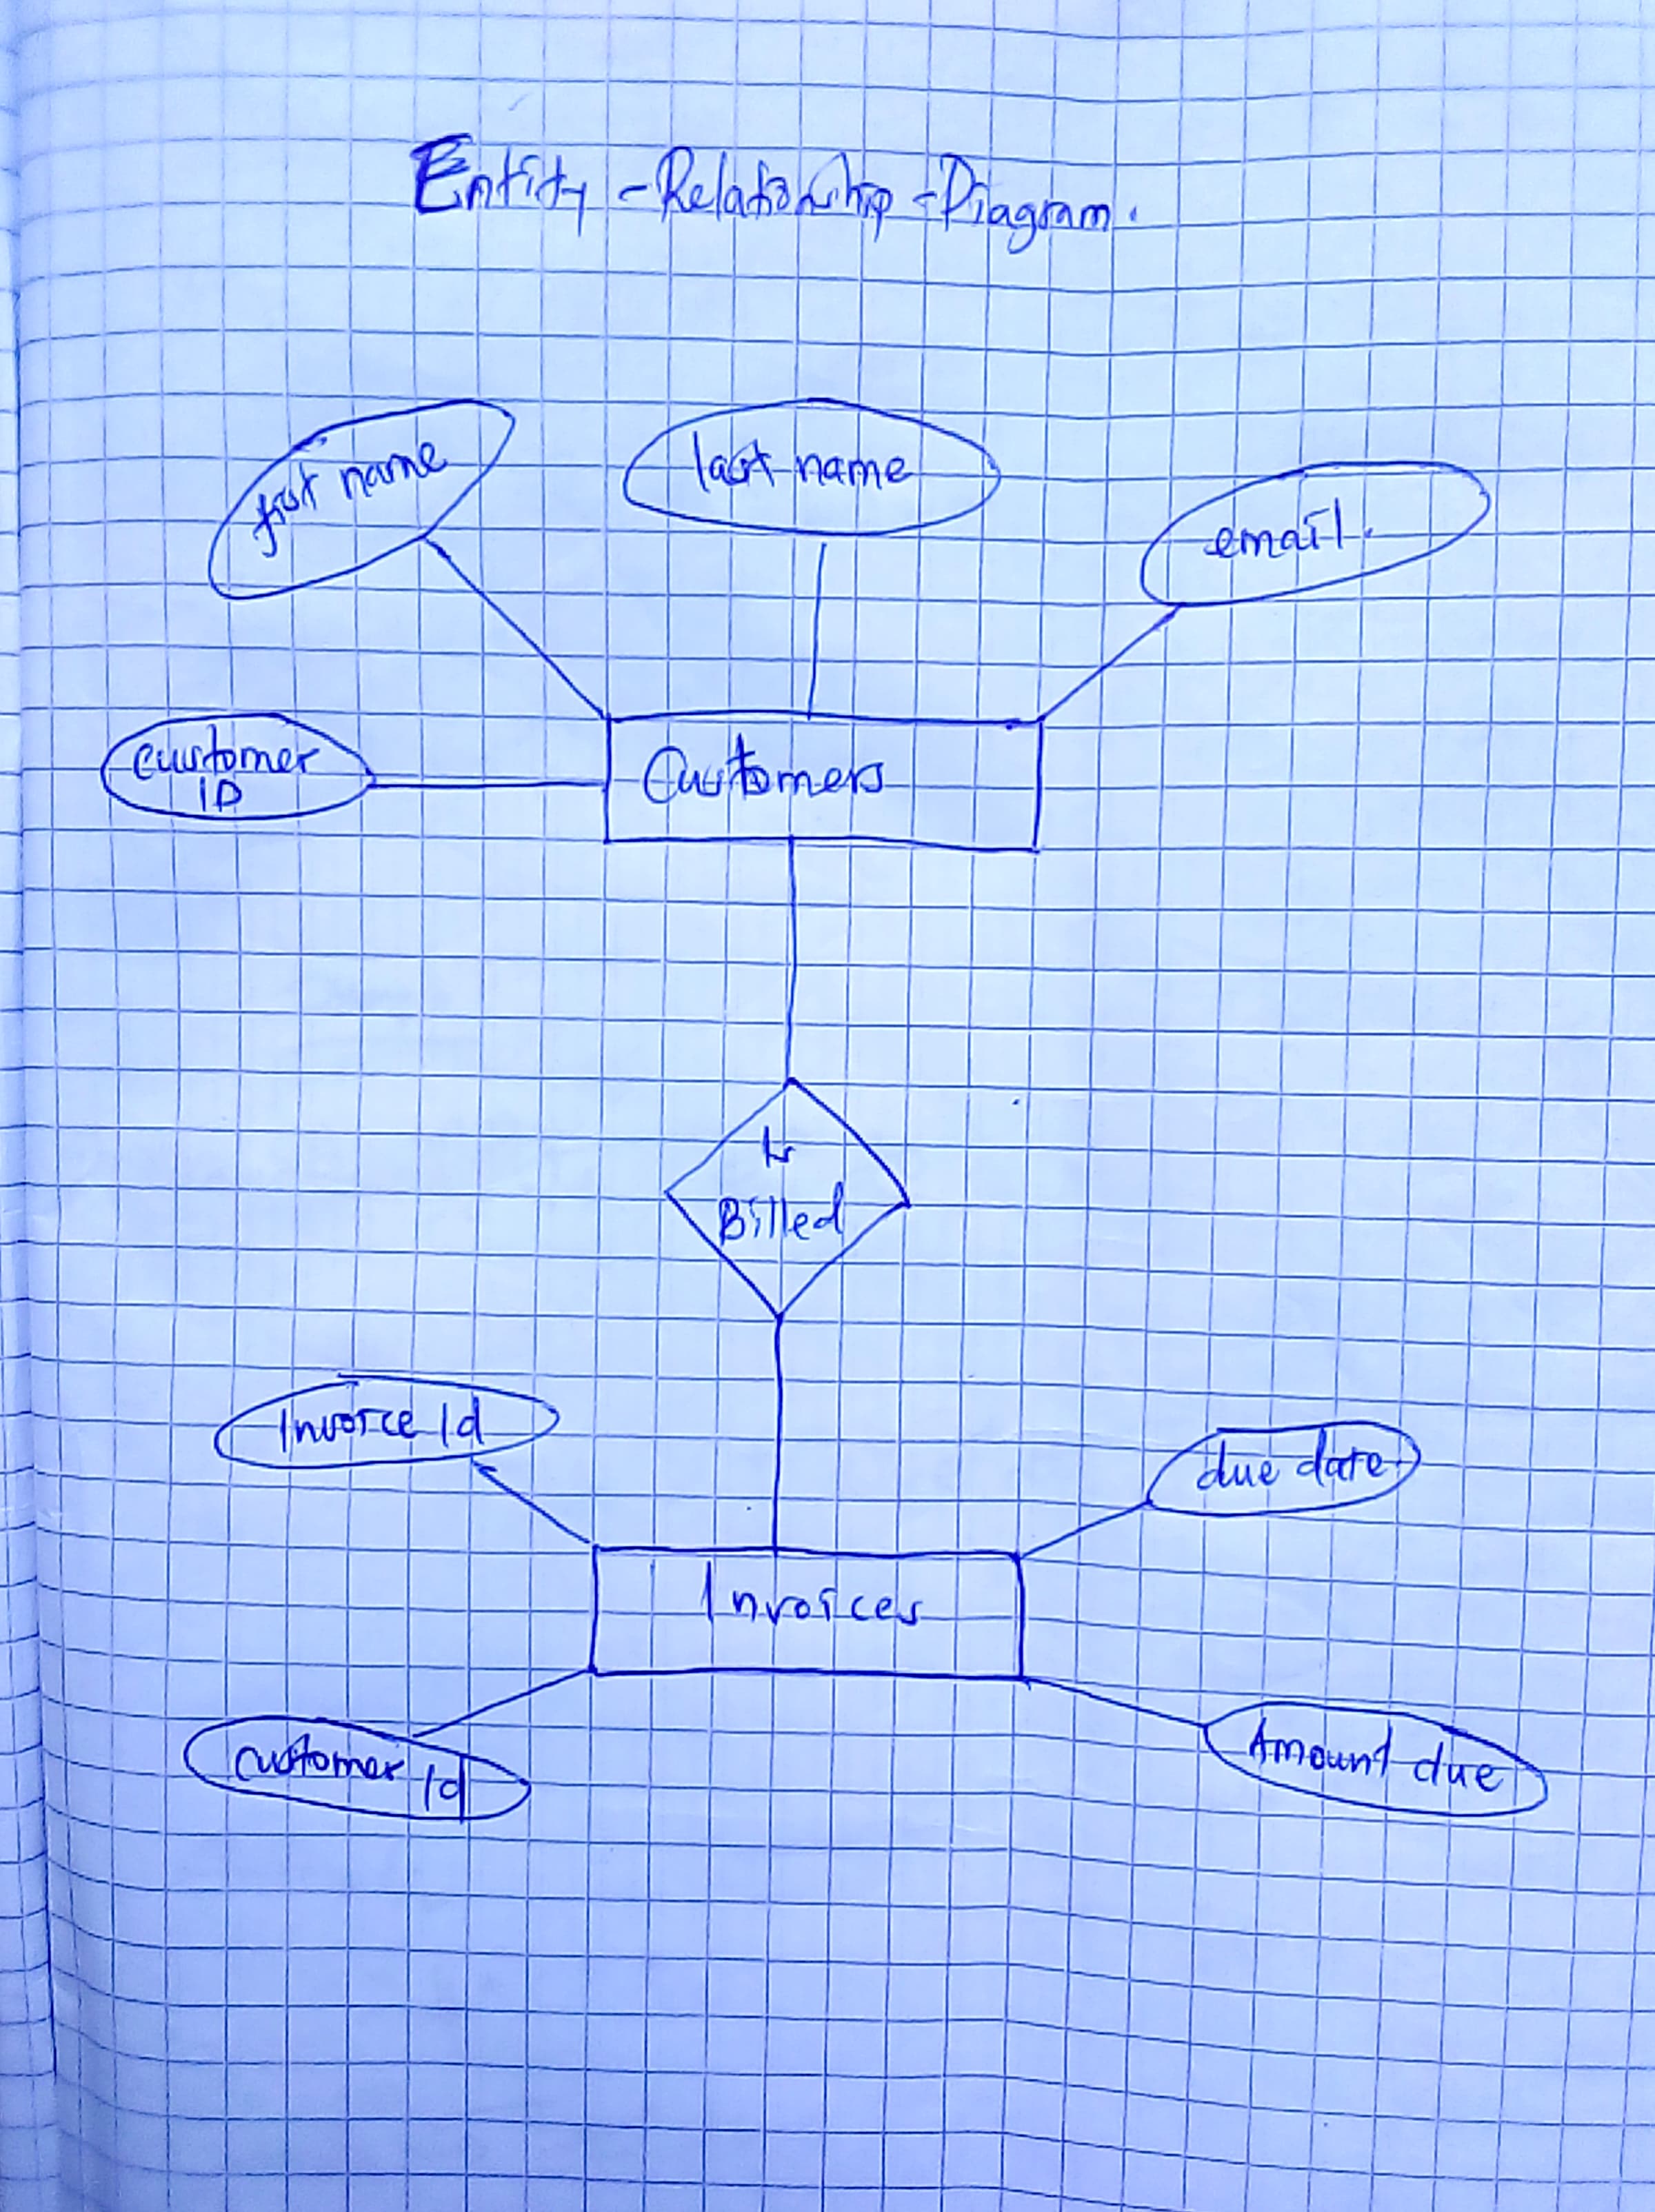 Entity-Relationship-Diagram.
first name
last name
email.
customer
ID
Customers
Is
Billed
Invoice Id
due date
Invoices
customer Id
Amount due